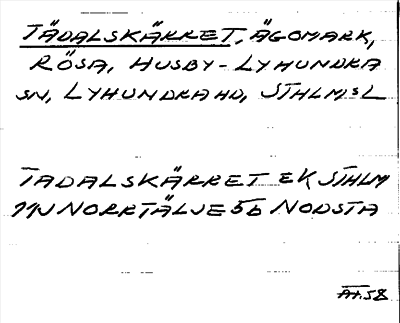 TÄDALSKÄRRET, ÄGOMARK,
RÖSA, HUSBY-LYHUNDRA
SN, LYHUNDRA HD, STHLMS L
TADALSKÄRRET EK STHLM
11J NORRTÄLJE 5b NODSTA
ÄH.58